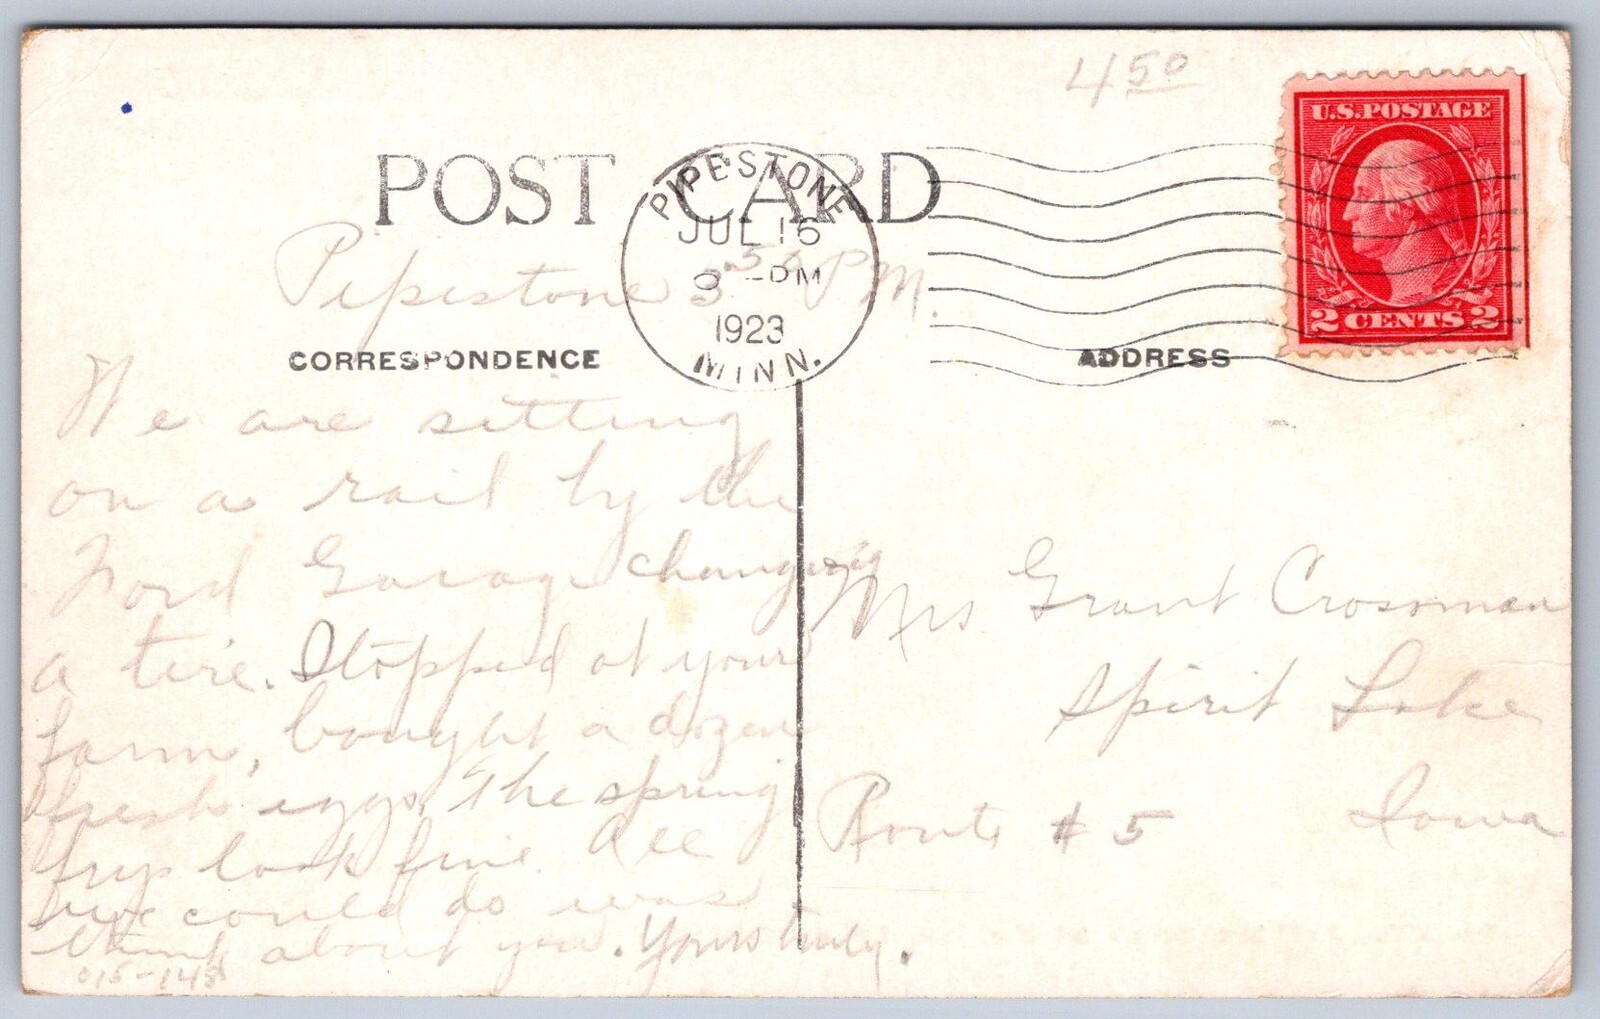 4 50
U.S.POSTAGE
2 CENTS 2
POST CARD
PIPESTONE
JUL 16
-PM
1923
MINN.
Pipestone 3:50 PM.
CORRESPONDENCE
ADDRESS
We are setting
on a rail by the
Ford Garage changing
a tire. Stopped at your
farm, bought a dozen
fresh eggs. The spring
frys look fine. All
we could do was
think about you. Yours truly.
015-148
Mrs Grant Crossman
Spirit Lake
Route # 5 Iowa